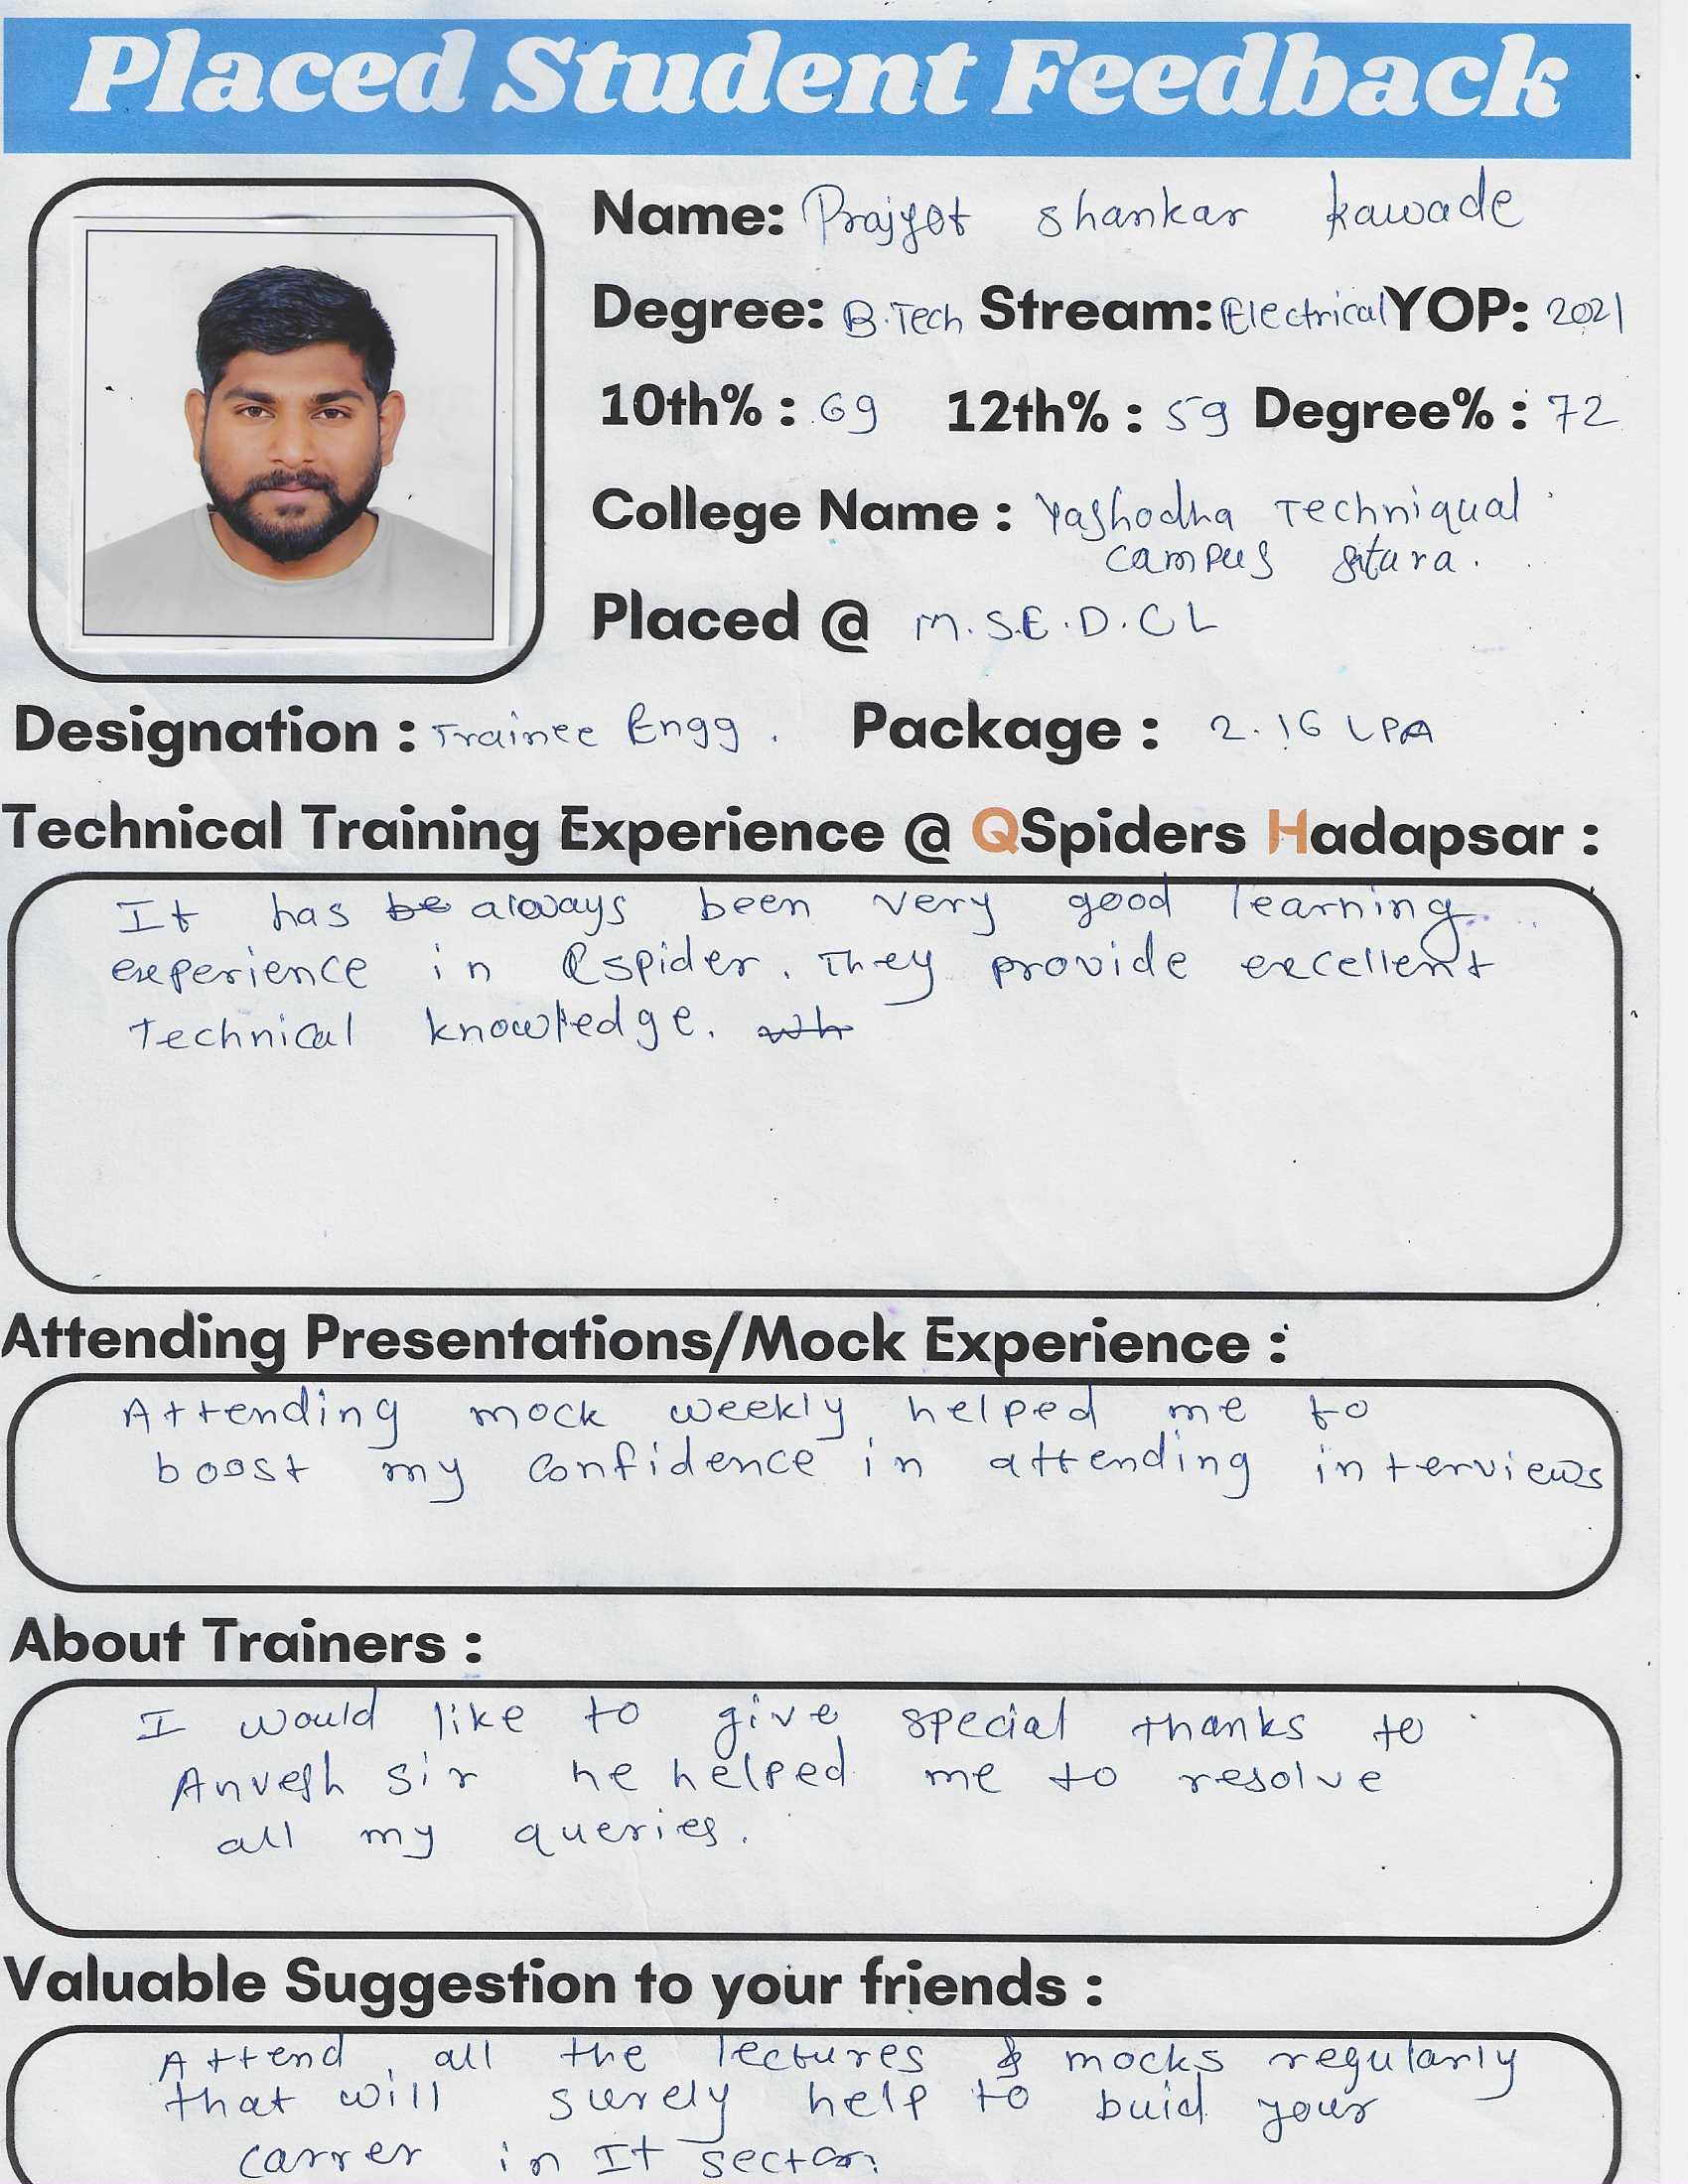 Placed Student Feedback
Name: Prajyot Shankar Kawade
Degree: B.Tech Stream: Electrical YOP: 2021
10th% : 69 12th% : 59 Degree% : 72
College Name : Yashodha Techniqual
campus Satara.
Placed @ M.S.E.D.C L
Designation : Trainee Engg. Package : 2.16 LPA
Technical Training Experience @ QSpiders Hadapsar :
It has be always been very good learning
experience in Qspider. They provide excellent
Technical knowledge. wh
Attending Presentations/Mock Experience :
Attending mock weekly helped me to
boost my confidence in attending interviews
About Trainers :
I would like to give special thanks to
Anvesh sir he helped me to resolve
all my queries.
Valuable Suggestion to your friends :
Attend, all the lectures & mocks regularly
that will surely help to buid your
carrer in It sector.